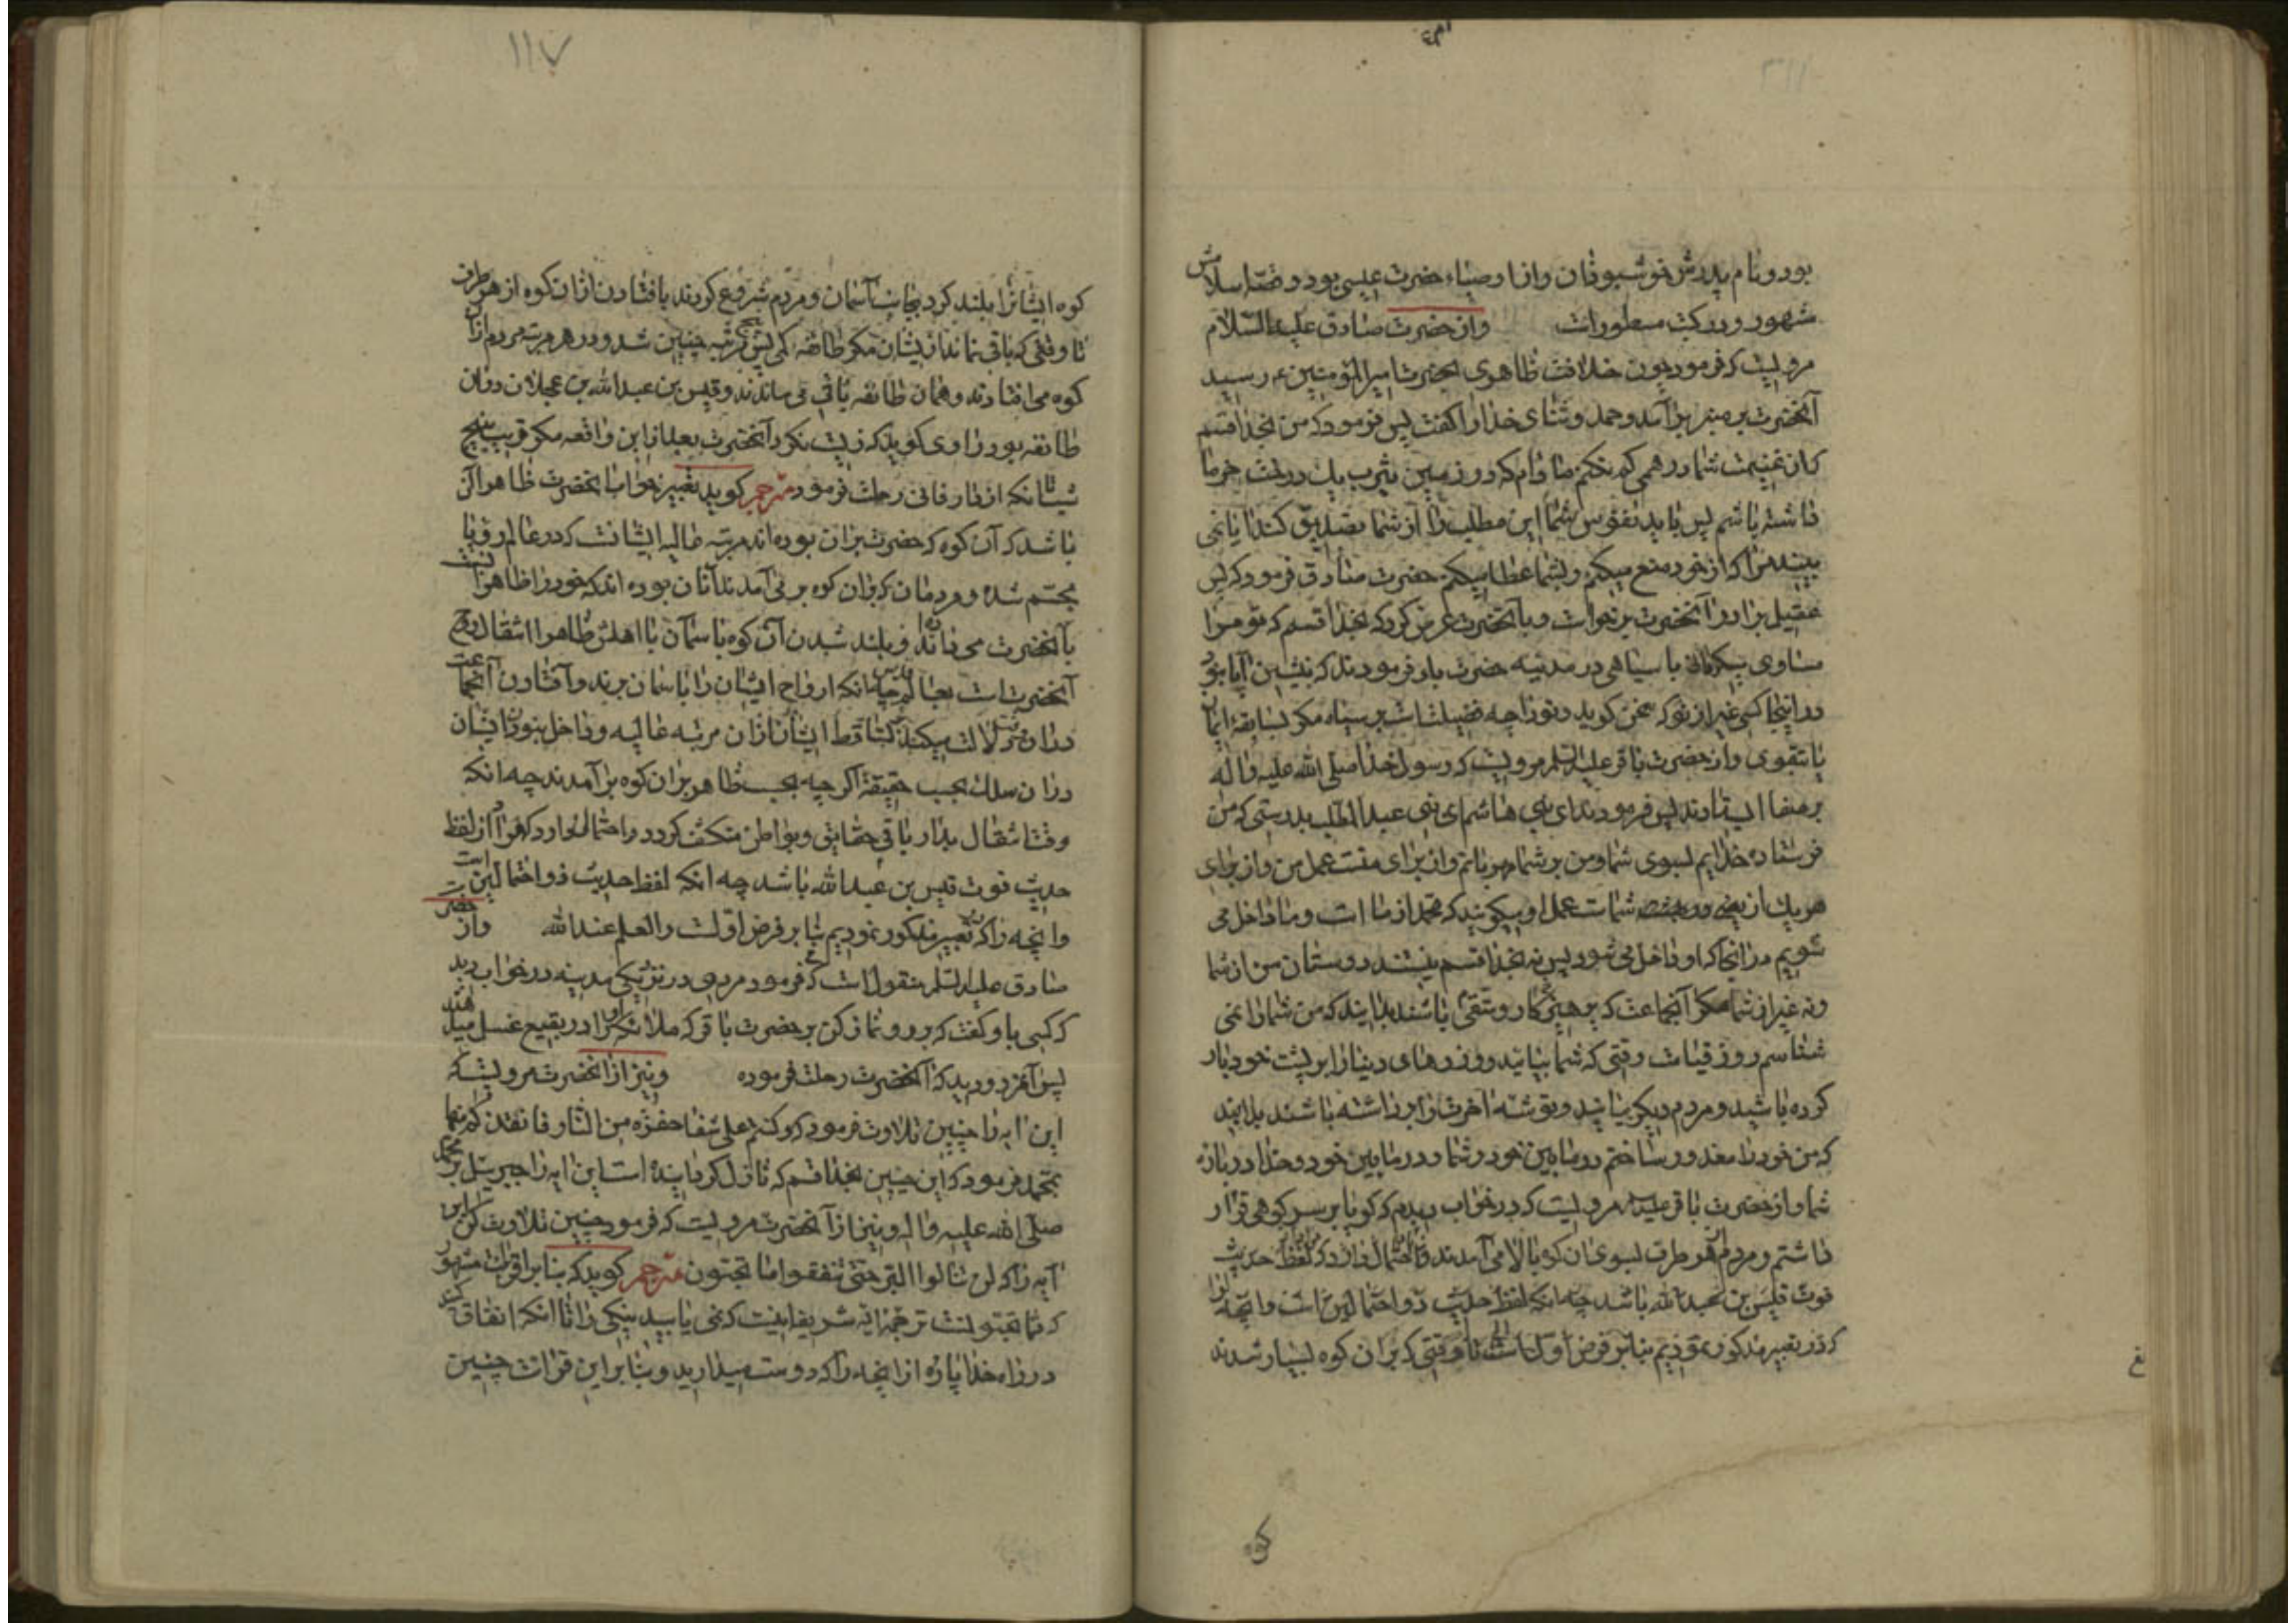 بود و نام پدرش خوشبودان و از اوصیاء حضرت عیسی بود و قصّه اسلامش
مشهور و در کتب مسطور است و از حضرت صادق علیه السّلام
مرویست که فرمود چون خلافت ظاهری بحضرت امیر المؤمنین ع رسید
آنحضرت بر منبر برآمد و حمد و ثنای خدا را گفت پس فرمود که من بخدا قسم
که از غنیمت شما درهمی کم نکنم مادام که در زمین یثرب یک درخت خرما
داشته باشم پس باید نفوس شما این مطلب را از شما تصدیق کند آیا نمی
بینید مرا که از خود منع میکنم و بشما عطا میکنم حضرت صادق فرمود که پس
عقیل برادر آنحضرت برخواست و بآنحضرت عرض کرد که بخدا قسم که تو مرا
مساوی میگردانی با سیاهی در مدینه حضرت باو فرمودند که بنشین آیا نبود
در اینجا کسی غیر از تو که سخن گوید و تو را چه فضیلت است بر سیاه مگر بسابقهٔ ایمان
یا بتقوی و از حضرت باقر علیه السلم مرویست که رسول خدا صلی الله علیه و اله
بر صفا ایستادند پس فرمودند ای بنی هاشم ای بنی عبد المطلب بدرستی که من
فرستاده خدایم بسوی شما و من بر شما مهربانم و از برای منست عمل من و از برای
هر یک از شماست عمل او میگویند که محمد از ما است و ما داخل می
شویم در آنجا که او داخل می شود پس نه بخدا قسم نیستند دوستان من از شما
و نه غیر از شما مگر آنجماعت که پرهیزکار و متقی باشند بدانید که من شما را نمی
شناسم روز قیامت وقتی که شما بیائید و وزرهای دنیا را بر پشت خود بار
کرده باشید و مردم دیگر بیایند و توشه آخرت را برداشته باشند بدانید
که من خود را معذور ساختم در مابین خود و شما و در مابین خود و خدا در باره
شما و از حضرت باقر علیه السلم مرویست که در خواب دیدم که گویا بر سر کوهی قرار
داشتم و مردم از هر طرف بسوی ان کوه بالا می آمدند و احتمال دارد که لفظ حدیث
فوت قیس بن عبدالله باشد چه انکه لفظ حدیث ذو احتمالین است و آنچه را
که در تعبیر مذکور نمودیم بنا بر فرض اول است تا وقتی که بر ان کوه بسیار شدند
۱۱۷
کوه ایشانرا بلند کرد بجانب آسمان و مردم شروع کردند بافتادن از ان کوه از هر طرف
تا وقتی که باقی نماند از یشان مگر طائفه کمی پس پنج مرتبه چنین شد و در هر مرتبه مردم از آن
کوه می افتادند و همان طائفه باقی می ماندند و قیس بن عبدالله بن عجلان در ان
طائفه بود راوی گوید که زیست نکرد آنحضرت بعد از این واقعه مگر قریب پنج
تا انکه از دار فانی رحلت فرمود مترجم گوید تعبیر خواب انحضرت ظاهرا آن
باشد که آن کوه که حضرت بر ان بوده اند مرتبه عالیه ایشانست که در عالم رؤیا
مجسّم شده و مردمان که بر ان کوه برمی آمدند آنان بوده اند که خود را ظاهرا
بآنحضرت می داند و بلند شدن آن کوه باسمان با اهلش ظاهرا انتقال روح
آنحضرت است بعالم چنانکه ارواح ایشان را باسمان برند و افتادن آنجماعت
در ان دلالت میکند بر تساقط ایشان از ان مرتبه عالیه و داخل نبودن ایشان
در ان سلک بحسب حقیقة اگر چه بحسب ظاهر بر ان کوه برآمدند چه انکه
وقت انتقال بدار باقی حقایق و بواطن منکشف گردد و احتمال دارد که مراد از لفظ
حدیث فوت قیس بن عبدالله باشد چه انکه لفظ حدیث ذو احتمالین است
و انچه را که در تعبیر مذکور نمودیم بنا بر فرض اولست والعلم عند الله و از حضرت
صادق علیه السلم منقولست که فرمود مردی در نزدیکی مدینه در خواب دید
که کسی باو گفت که برو و نماز کن بر حضرت باقر که ملائکه او را در بقیع غسل میدهند
پس آنمرد و دید که آنحضرت رحلت فرموده و نیز از انحضرت مرویست که
این آیه را چنین تلاوت فرمود که و کنتم علی شفا حفرة من النار فانقذکم منها
بمحمد فرمود که این چنین بخدا قسم که نازل گردانیده است این ایه را جبرییل بر محمد
صلی الله علیه و اله و نیز از آنحضرت مرویست که فرمود چنین تلاوت کن این
آیه را که لن تنالوا البر حتی تنفقوا ما تحبون مترجم گوید که بنا بر قرائت مشهور
که مما تحبونست ترجمهٔ ایه شریفه اینست که نمی یابید نیکی را تا انکه انفاق کنید
در راه خدا پارهٔ از انچه را که دوست میدارید و بنا بر این قرائت چنین